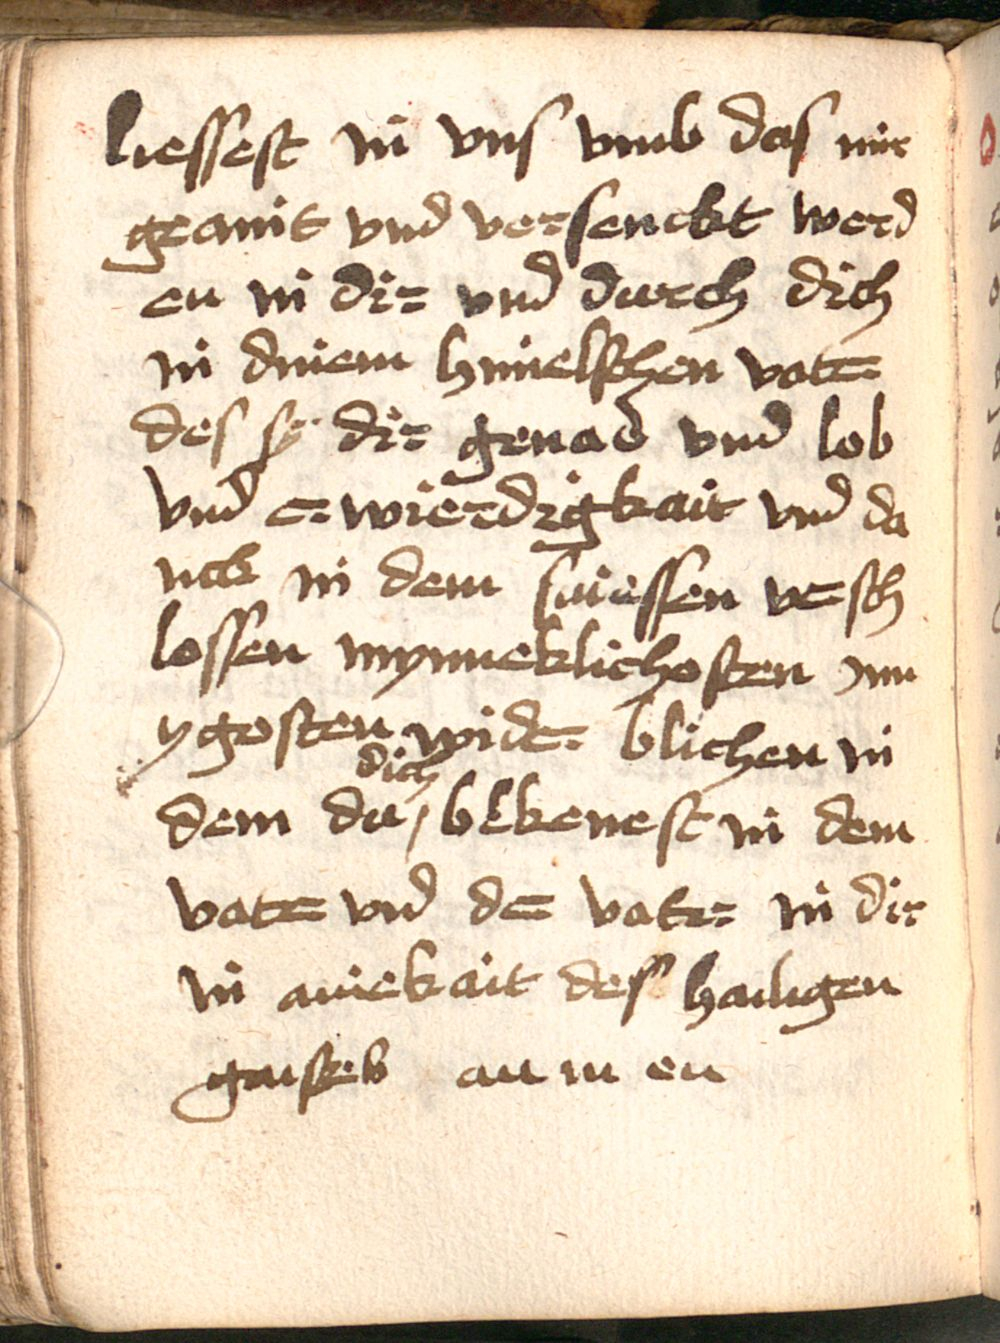 liessest in vns vmb das mir
geainit vnd versenckt werd
en in dir vnd durch dich
in dinem himelschen vater
des sy dir genad vnd lob
vnd erwierdigkait vnd da
nck in dem suiessen versch
lossen mynneklichosten inn
ygosten wider blichen in
dem du dich bekenest in dem
vater vnd der vater in dir
in ainekait des hailigen
gaistes am m en